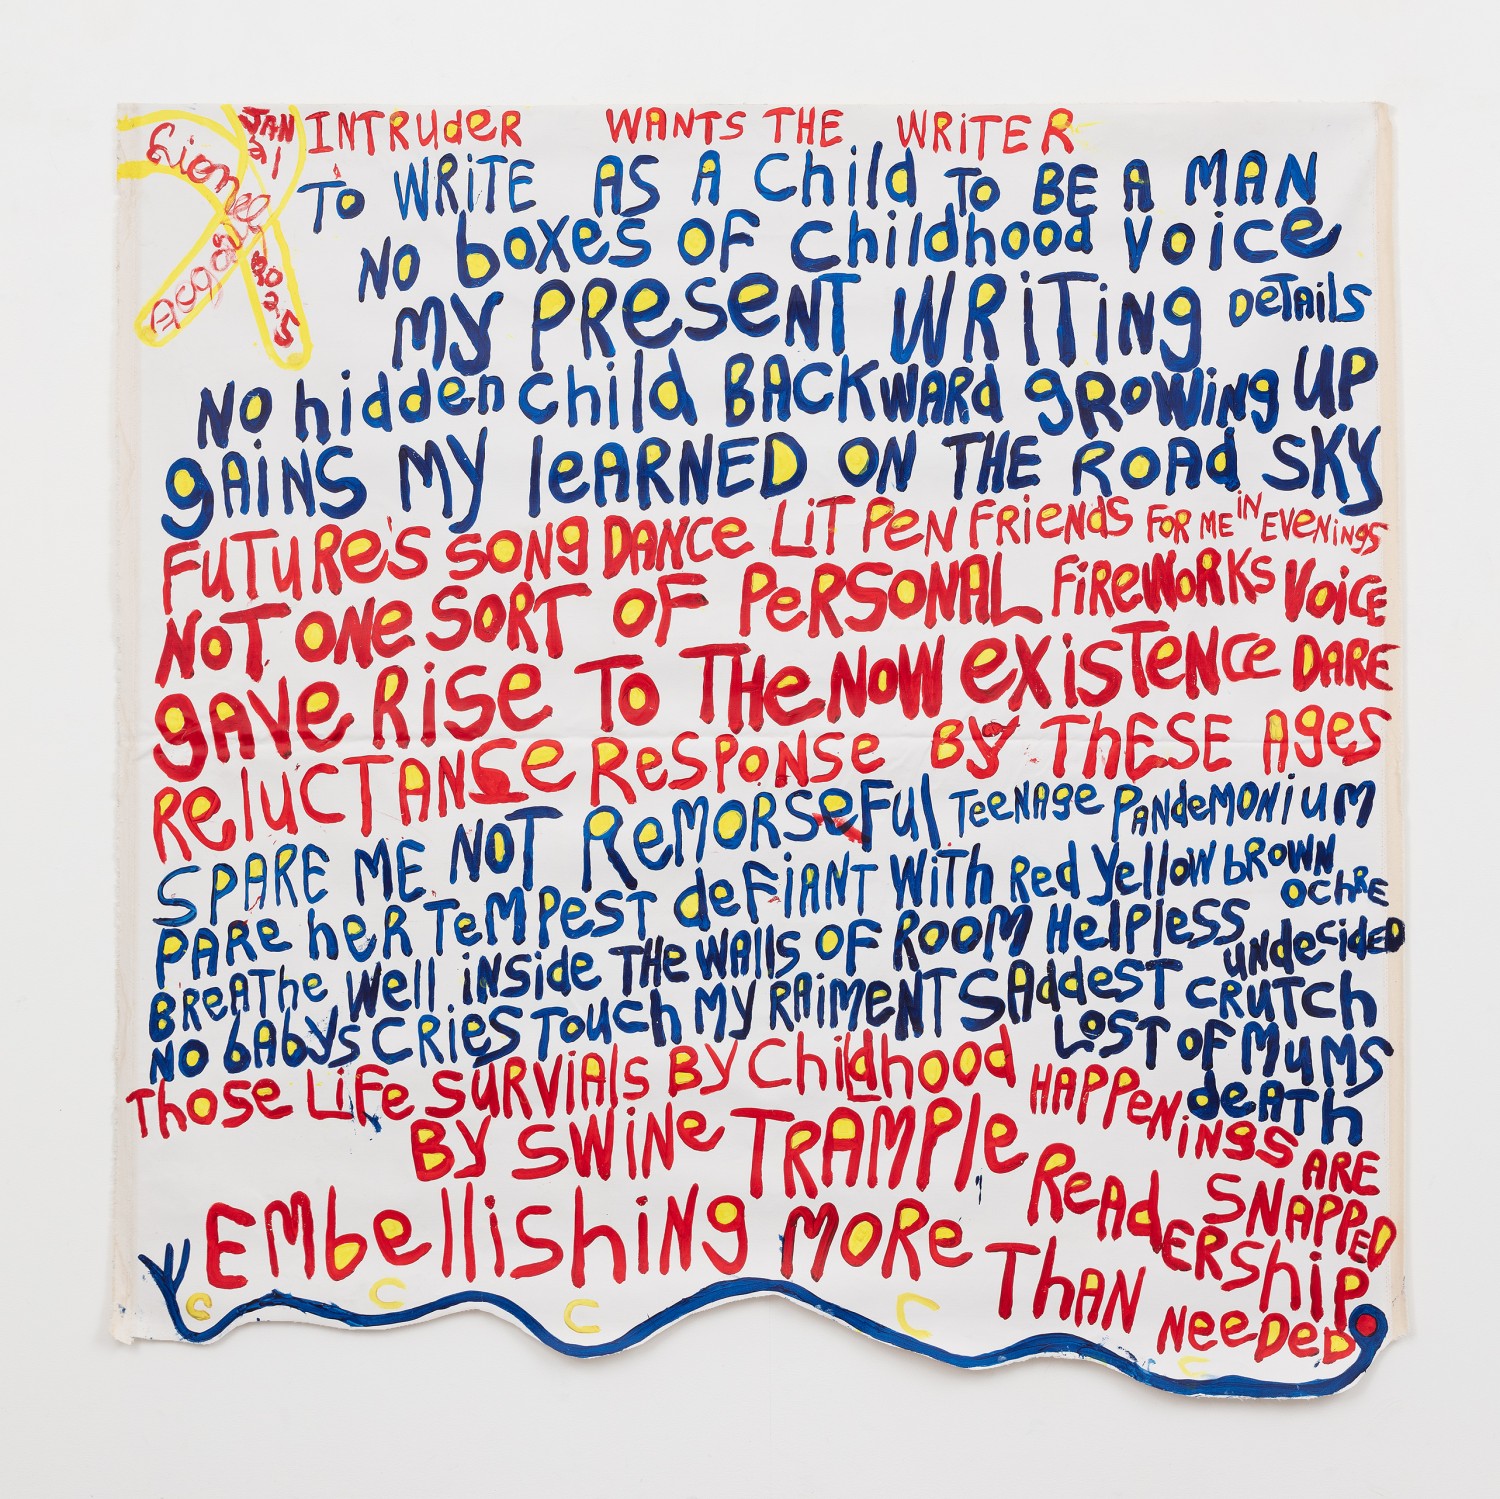 Lionel
Acgave
JAN
21
2025
INTRUdER WANTS THE WRITER
TO WRITE AS A Child TO BE A MAN
NO boxes OF childhood VOICE
My PResENT WRiTiNg DeTAils
NO hidden child BACKWARd gROWiNg UP
gAiNS MY leARNED ON THE ROAd SKY
FuTuRe's SONg DANCe LiT PeN FRieNds FOR ME IN EVENiNgS
NOT ONe SORT OF PeRSONAL FiReWORKs VOiCE
gAVe RiSe TO THe NOW eXiSTeNce DARE
ReluCTANSe ResPONse BY ThESE AgeS
SPARE ME NOT ReMORSeFul TeeNAge PANdeMONiuM
PARe heR TeMPesT deFiANT WiTh Red Yellow bROWN OChRE
BReAThe Well iNSide THe WAlls OF ROOM HelPless uNdeCideD
NO bAbYs CRies TOuCh MY RAiMENT SAddesT CRUTCh
LOST OF MuMS
deATh
Those LiFe SURViAlS BY Childhood HAPPeNiNgS ARE
BY SWiNe TRAMPle ReAdERShiP SNAPPED
EMbellishiNg MORe ThAN NeeDeD
C C C C C